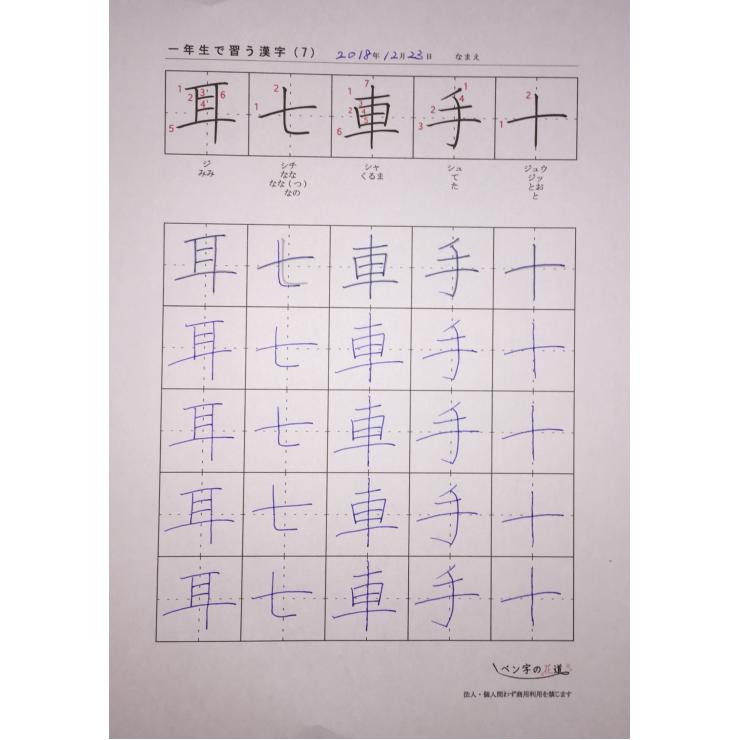 一年生で習う漢字（7） 2018年12月23日 なまえ
耳 七 車 手 十
1 2 3 4 5 6 1 2 1 2 3 4 5 6 7 1 2 3 4 1 2
ジ シチ シャ シュ ジュウ
みみ なな くるま て ジッ
なな（つ） た とお
なの と
耳 七 車 手 十
耳 七 車 手 十
耳 七 車 手 十
耳 七 車 手 十
耳 七 車 手 十
ペン字の花道
法人・個人問わず商用利用を禁じます